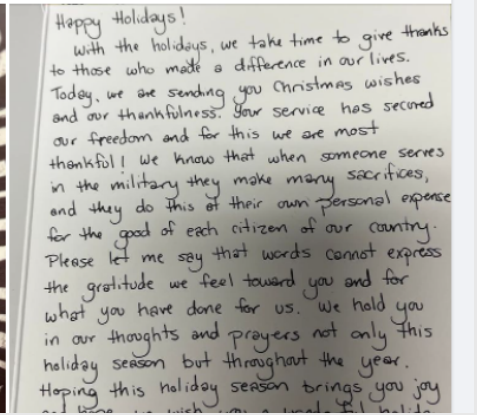 Happy Holidays!
With the holidays, we take time to give thanks
to those who made a difference in our lives.
Today, we are sending you Christmas wishes
and our thankfulness. Your service has secured
our freedom and for this we are most
thankful! We know that when someone serves
in the military they make many sacrifices,
and they do this at their own personal expense
for the good of each citizen of our country.
Please let me say that words cannot express
the gratitude we feel toward you and for
what you have done for us. We hold you
in our thoughts and prayers not only this
holiday season but throughout the year.
Hoping this holiday season brings you joy